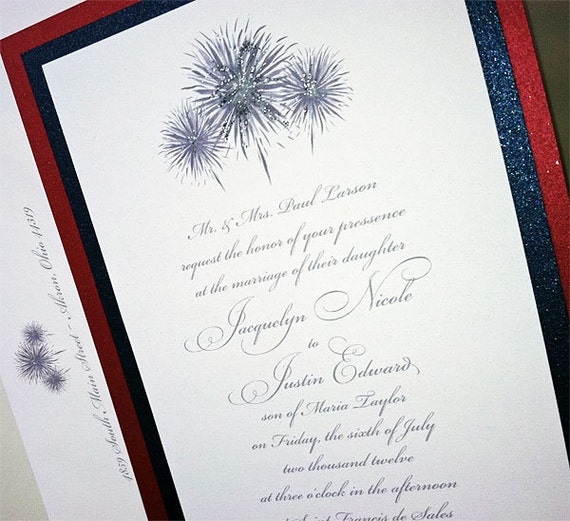 Mr. & Mrs. Paul Larson
request the honor of your pressence
at the marriage of their daughter
Jacquelyn Nicole
to
Justin Edward
son of Maria Taylor
on Friday, the sixth of July
two thousand twelve
at three o'clock in the afternoon
Saint Francis de Sales
4859 South Main Street ~ Akron, Ohio 44319